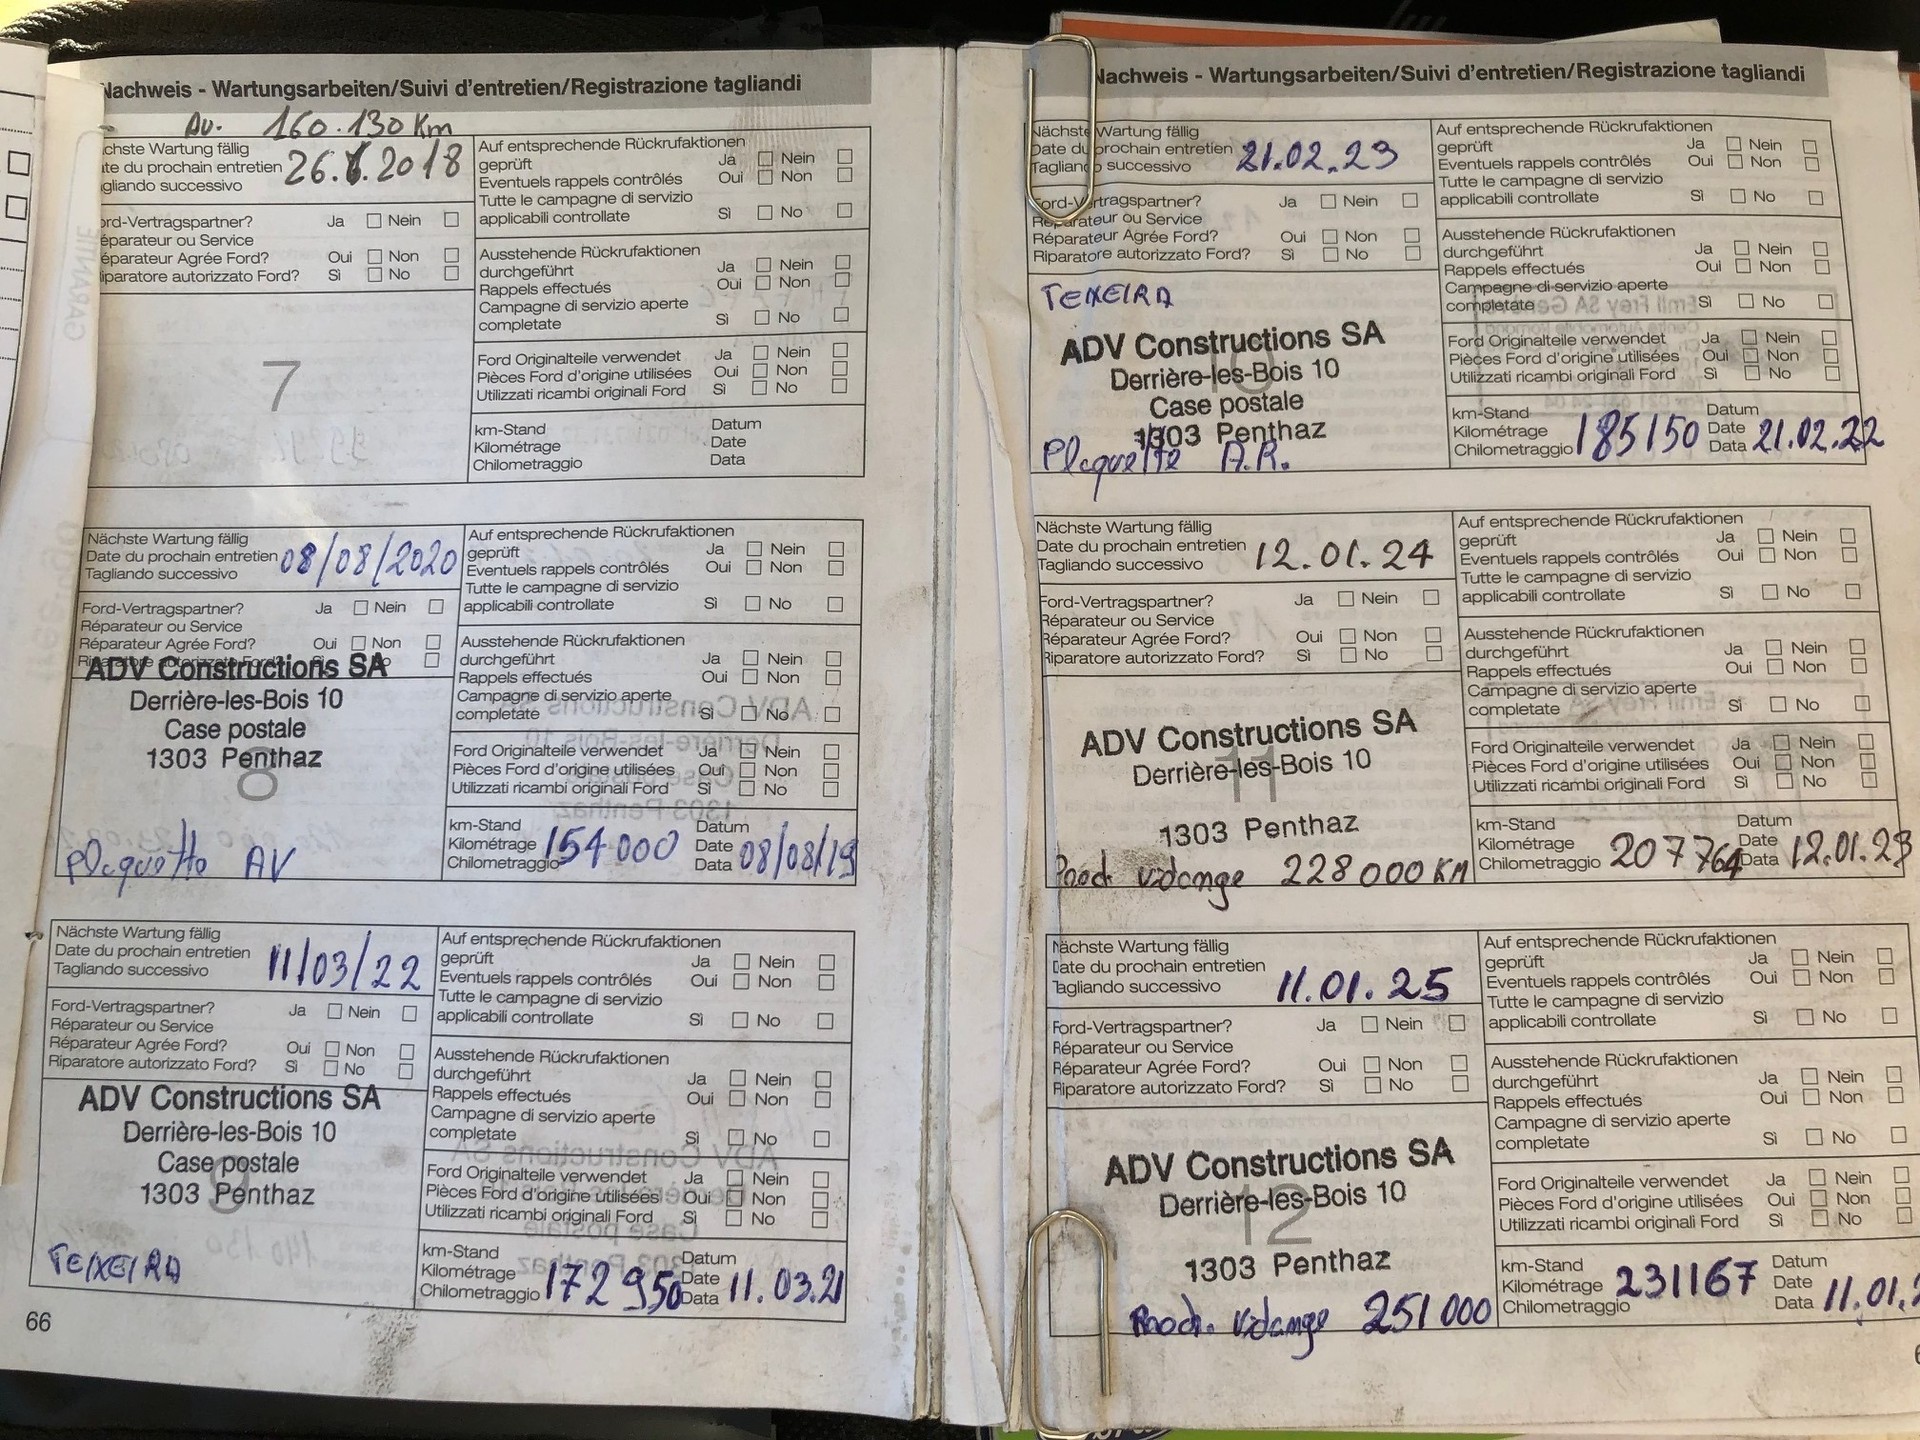 Nachweis - Wartungsarbeiten/Suivi d'entretien/Registrazione tagliandi
Av. 160.130 Km
chste Wartung fällig
te du prochain entretien 26.6.2018
gliando successivo
ord-Vertragspartner? Ja Nein
éparateur ou Service
éparateur Agrée Ford? Oui Non
iparatore autorizzato Ford? Sì No
7
Auf entsprechende Rückrufaktionen
geprüft Ja Nein
Eventuels rappels contrôlés Oui Non
Tutte le campagne di servizio
applicabili controllate Sì No
Ausstehende Rückrufaktionen
durchgeführt Ja Nein
Rappels effectués Oui Non
Campagne di servizio aperte
completate Sì No
Ford Originalteile verwendet Ja Nein
Pièces Ford d'origine utilisées Oui Non
Utilizzati ricambi originali Ford Sì No
km-Stand Datum
Kilométrage Date
Chilometraggio Data
Nächste Wartung fällig
Date du prochain entretien 08/08/2020
Tagliando successivo
Ford-Vertragspartner? Ja Nein
Réparateur ou Service
Réparateur Agrée Ford? Oui Non
Riparatore autorizzato Ford? Sì No
ADV Constructions SA
Derrière-les-Bois 10
Case postale
1303 Penthaz
8
plaquette AV
Auf entsprechende Rückrufaktionen
geprüft Ja Nein
Eventuels rappels contrôlés Oui Non
Tutte le campagne di servizio
applicabili controllate Sì No
Ausstehende Rückrufaktionen
durchgeführt Ja Nein
Rappels effectués Oui Non
Campagne di servizio aperte
completate Sì No
Ford Originalteile verwendet Ja Nein
Pièces Ford d'origine utilisées Oui Non
Utilizzati ricambi originali Ford Sì No
km-Stand Datum
Kilométrage 154 000 Date 08/08/19
Chilometraggio Data
Nächste Wartung fällig
Date du prochain entretien 11/03/22
Tagliando successivo
Ford-Vertragspartner? Ja Nein
Réparateur ou Service
Réparateur Agrée Ford? Oui Non
Riparatore autorizzato Ford? Sì No
ADV Constructions SA
Derrière-les-Bois 10
Case postale
9
1303 Penthaz
TEIXEIRA
Auf entsprechende Rückrufaktionen
geprüft Ja Nein
Eventuels rappels contrôlés Oui Non
Tutte le campagne di servizio
applicabili controllate Sì No
Ausstehende Rückrufaktionen
durchgeführt Ja Nein
Rappels effectués Oui Non
Campagne di servizio aperte
completate Sì No
Ford Originalteile verwendet Ja Nein
Pièces Ford d'origine utilisées Oui Non
Utilizzati ricambi originali Ford Sì No
km-Stand Datum
Kilométrage 172 950 Date 11.03.21
Chilometraggio Data
66
Nachweis - Wartungsarbeiten/Suivi d'entretien/Registrazione tagliandi
Nächste Wartung fällig
Date du prochain entretien 21.02.23
Tagliando successivo
Ford-Vertragspartner? Ja Nein
Réparateur ou Service
Réparateur Agrée Ford? Oui Non
Riparatore autorizzato Ford? Sì No
TEIXEIRA
ADV Constructions SA
Derrière-les-Bois 10
Case postale
1303 Penthaz
Plaquette A.R.
Auf entsprechende Rückrufaktionen
geprüft Ja Nein
Eventuels rappels contrôlés Oui Non
Tutte le campagne di servizio
applicabili controllate Sì No
Ausstehende Rückrufaktionen
durchgeführt Ja Nein
Rappels effectués Oui Non
Campagne di servizio aperte
completate Sì No
Ford Originalteile verwendet Ja Nein
Pièces Ford d'origine utilisées Oui Non
Utilizzati ricambi originali Ford Sì No
km-Stand Datum
Kilométrage 185150 Date 21.02.22
Chilometraggio Data
Nächste Wartung fällig
Date du prochain entretien 12.01.24
Tagliando successivo
Ford-Vertragspartner? Ja Nein
Réparateur ou Service
Réparateur Agrée Ford? Oui Non
Riparatore autorizzato Ford? Sì No
ADV Constructions SA
Derrière-les-Bois 10
11
1303 Penthaz
Proch. vidange 228 000 KM
Auf entsprechende Rückrufaktionen
geprüft Ja Nein
Eventuels rappels contrôlés Oui Non
Tutte le campagne di servizio
applicabili controllate Sì No
Ausstehende Rückrufaktionen
durchgeführt Ja Nein
Rappels effectués Oui Non
Campagne di servizio aperte
completate Sì No
Ford Originalteile verwendet Ja Nein
Pièces Ford d'origine utilisées Oui Non
Utilizzati ricambi originali Ford Sì No
km-Stand Datum
Kilométrage 207 764 Date 12.01.23
Chilometraggio Data
Nächste Wartung fällig
Date du prochain entretien 11.01.25
Tagliando successivo
Ford-Vertragspartner? Ja Nein
Réparateur ou Service
Réparateur Agrée Ford? Oui Non
Riparatore autorizzato Ford? Sì No
ADV Constructions SA
Derrière-les-Bois 10
12
1303 Penthaz
Proch. vidange 251 000
Auf entsprechende Rückrufaktionen
geprüft Ja Nein
Eventuels rappels contrôlés Oui Non
Tutte le campagne di servizio
applicabili controllate Sì No
Ausstehende Rückrufaktionen
durchgeführt Ja Nein
Rappels effectués Oui Non
Campagne di servizio aperte
completate Sì No
Ford Originalteile verwendet Ja Nein
Pièces Ford d'origine utilisées Oui Non
Utilizzati ricambi originali Ford Sì No
km-Stand Datum
Kilométrage 231167 Date 11.01.2
Chilometraggio Data